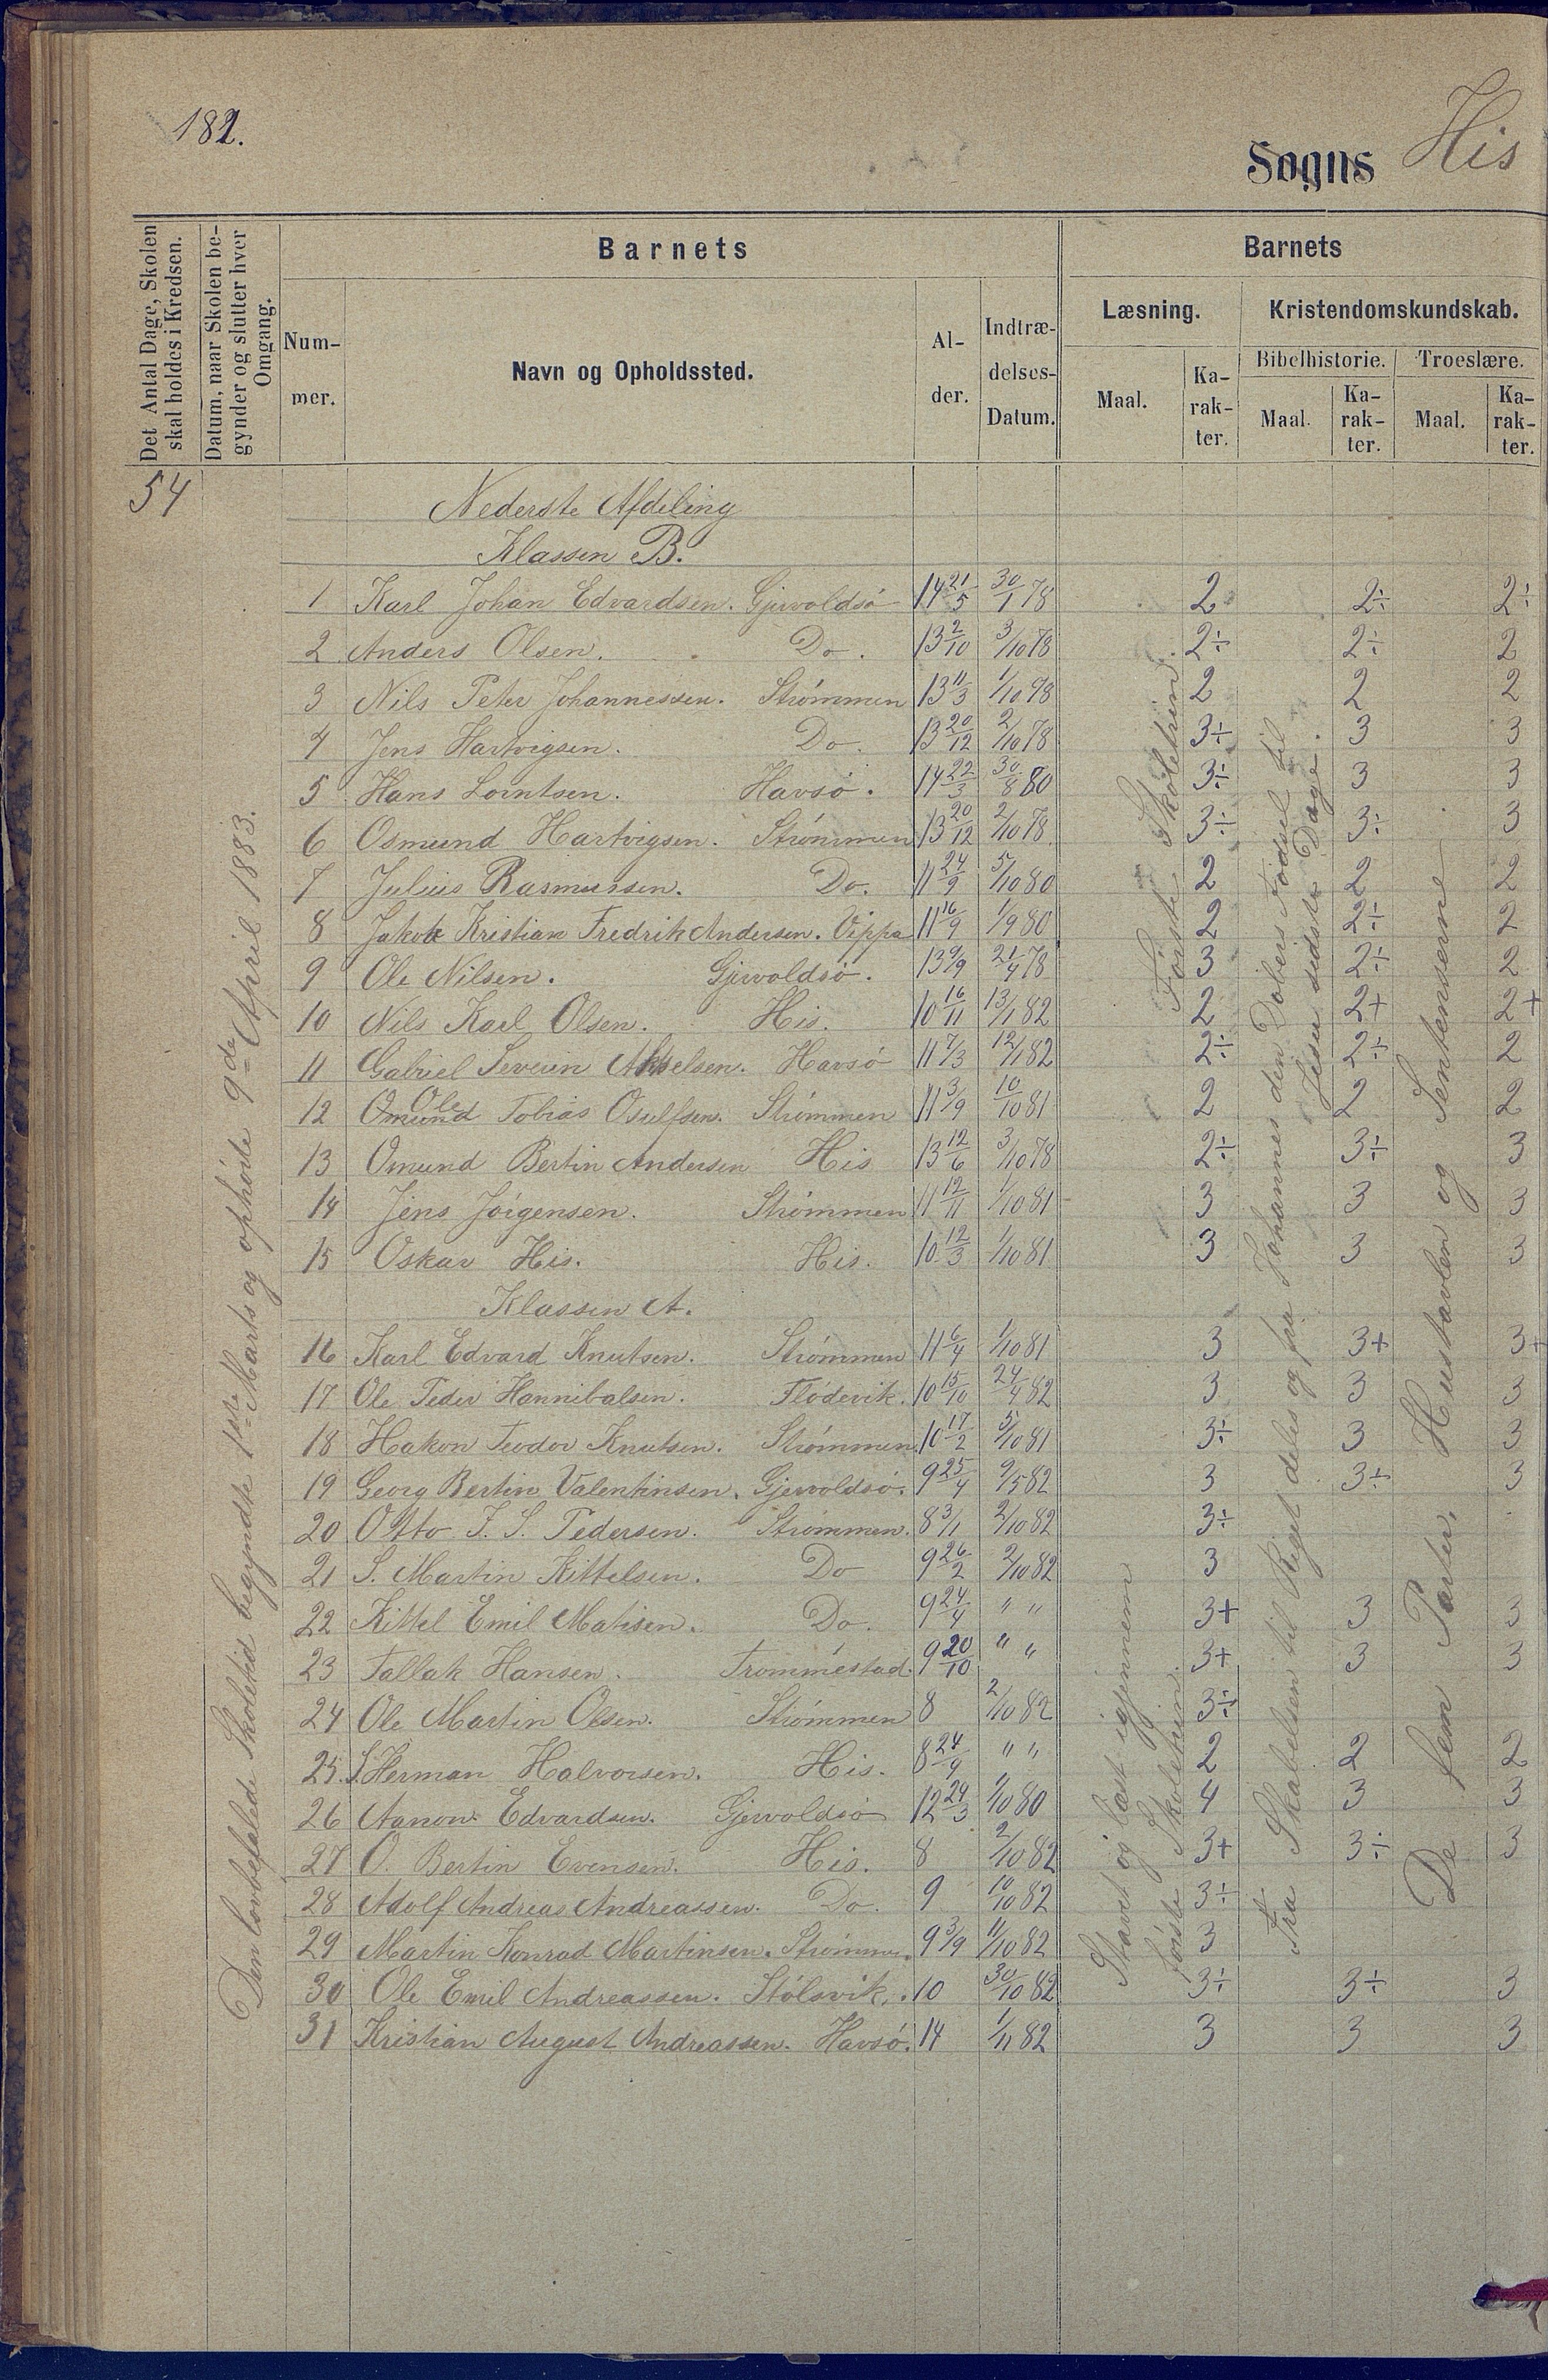 182.
Sogns His
Det Antal Dage, Skolen skal holdes i Kredsen.
Datum, naar Skolen begynder og slutter hver Omgang.
Barnets
Barnets
Nummer.
Navn og Opholdssted.
Alder.
Indtrædelses-Datum.
Læsning.
Kristendomskundskab.
Bibelhistorie.
Troeslære.
Maal.
Karakter.
Maal.
Karakter.
Maal.
Karakter.
54
Den lovbefalede Skoletid begyndte 1ste Marts og ophørte 9de April 1883.
Nederste Afdeling
Klassen B.
1 Karl Johan Edvardsen. Gjervoldsø 14 21/5 30/1 78 2 2÷ 2÷
2 Anders Olsen. Do. 13 2/10 3/10 78 2÷ 2÷ 2
3 Nils Peter Johannessen. Strømmen 13 11/3 1/10 78 2 2 2
4 Jens Hartvigsen. Do. 13 20/12 2/10 78 3÷ 3 3
5 Hans Lorntsen. Havsø. 14 22/3 30/8 80 3÷ 3 3
6 Osmund Hartvigsen. Strømmen 13 20/12 2/10 78 3÷ 3÷ 3
7 Julius Rasmussen. Do. 11 24/9 5/10 80 2 2 2
8 Jakob Kristian Fredrik Andersen. Vippa 11 16/9 1/9 80 2 2÷ 2
9 Ole Nilsen. Gjervoldsø. 13 9/9 21/4 78 3 2÷ 2
10 Nils Karl Olsen. His. 10 16/11 13/1 82 2 2+ 2+
11 Gabriel Severin Akselsen. Havsø 11 7/3 12/1 82 2÷ 2÷ 2
12 Omund Ole Tobias Osulfsen. Strømmen 11 3/9 10/10 81 2 2 2
13 Omund Bertin Andersen His 13 12/6 3/10 78 2÷ 3÷ 3
14 Jens Jörgensen. Strømmen 11 12/11 1/10 81 3 3 3
15 Oskar His. His. 10 12/3 1/10 81 3 3 3
Klassen A.
16 Karl Edvard Knutsen. Strømmen 11 6/4 1/10 81 3 3+ 3+
17 Ole Peder Hannibalsen. Flødevik. 10 15/10 24/4 82 3 3 3
18 Hakon Teodor Knutsen. Strømmen 10 17/2 5/10 81 3÷ 3 3
19 Georg Bertin Valentinsen. Gjervoldsø. 9 25/4 9/5 82 3 3÷ 3
20 Otto J. S. Pedersen. Strømmen. 8 3/1 2/10 82 3÷
21 S. Martin Kittelsen. Do 9 26/2 2/10 82 3
22 Kittel Emil Matisen. Do. 9 24/4 " " 3+ 3 3
23 Tallak Hansen. Trommestad. 9 20/10 " " 3+ 3 3
24 Ole Martin Olsen. Strømmen 8 2/10 82 3÷
25. J. Herman Halvorsen. His. 8 24/4 " " 2 2 2
26 Aanon Edvardsen. Gjervoldsø 12 24/3 1/10 80 4 3 3
27 O. Bertin Evensen. His. 8 2/10 82 3+ 3÷ 3
28 Adolf Andreas Andreassen. Do. 9 10/10 82 3÷
29 Martin Konrad Martinsen. Strømmen. 9 3/9 11/10 82 3
30 Ole Emil Andreassen. Stølsvik. 10 30/10 82 3÷ 3÷ 3
31 Kristian August Andreassen. Havsø. 14 1/11 82 3 3 3
Første Skoletrin.
Stavet og læst igjennem
første Skoletrin.
Fra Skabelsen til Riget deles og fra Johannes den Døbers Fødsel til
Jesu sidste Dage.
De fem Parter, Hustavlen og Sentenserne